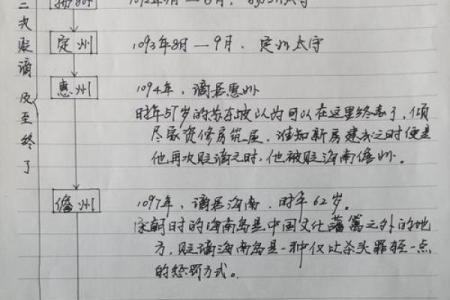 二次贬谪及至终了
扬州 1092年
定州 1093年8月—9月，定州太守
惠州 1094年，谪居惠州
时年57岁的苏东坡以为可以在这里终老了，倾
尽家资修房筑屋，谁知新房建成之时便是
他再次贬谪之时，他被贬海南儋州。
儋州 1097年，谪居海南，时年62岁。
宋朝时的海南岛是中国文化藩篱之外的地
方，贬谪海南岛是一种仅比杀头罪轻一点
的惩罚方式。